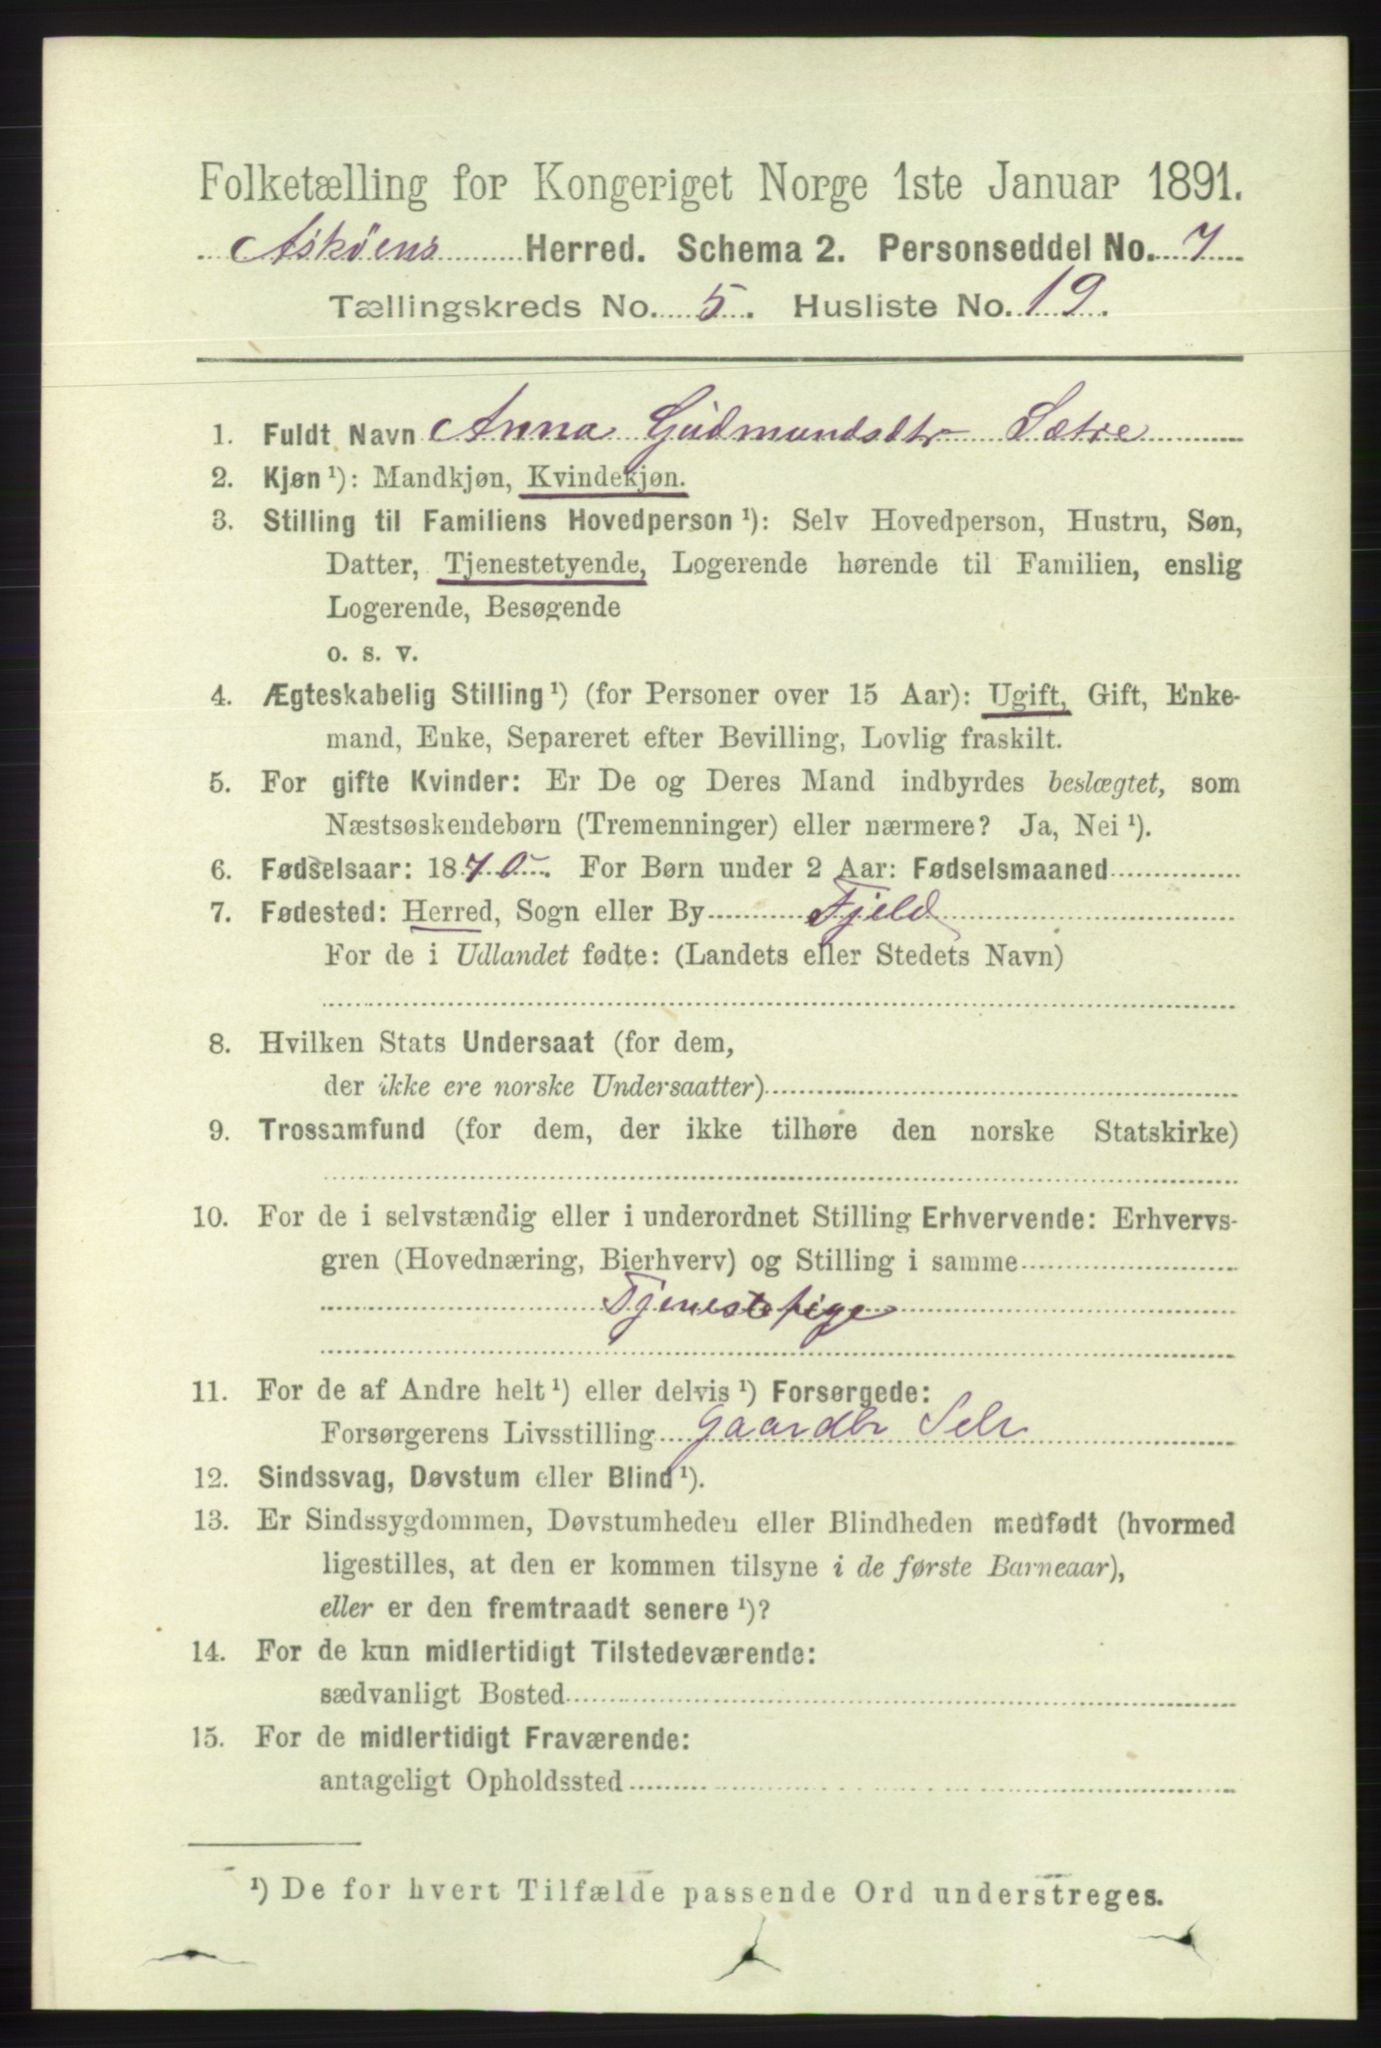 Folketælling for Kongeriget Norge 1ste Januar 1891.
Askøens Herred. Schema 2. Personseddel No. 7
Tællingskreds No. 5. Husliste No. 19.
1. Fuldt Navn Anna Gudmundsdtr Sætre
2. Kjøn ¹): Mandkjøn, Kvindekjøn.
3. Stilling til Familiens Hovedperson ¹): Selv Hovedperson, Hustru, Søn,
Datter, Tjenestetyende, Logerende hørende til Familien, enslig
Logerende, Besøgende
o. s. v.
4. Ægteskabelig Stilling ¹) (for Personer over 15 Aar): Ugift, Gift, Enke-
mand, Enke, Separeret efter Bevilling, Lovlig fraskilt.
5. For gifte Kvinder: Er De og Deres Mand indbyrdes beslægtet, som
Næstsøskendebørn (Tremenninger) eller nærmere? Ja, Nei ¹).
6. Fødselsaar: 1870. For Børn under 2 Aar: Fødselsmaaned
7. Fødested: Herred, Sogn eller By Fjeld
For de i Udlandet fødte: (Landets eller Stedets Navn)
8. Hvilken Stats Undersaat (for dem,
der ikke ere norske Undersaatter)
9. Trossamfund (for dem, der ikke tilhøre den norske Statskirke)
10. For de i selvstændig eller i underordnet Stilling Erhvervende: Erhvervs-
gren (Hovednæring, Bierhverv) og Stilling i samme
Tjenestepige
11. For de af Andre helt ¹) eller delvis ¹) Forsørgede:
Forsørgerens Livsstilling Gaardbr Selv
12. Sindssvag, Døvstum eller Blind ¹).
13. Er Sindssygdommen, Døvstumheden eller Blindheden medfødt (hvormed
ligestilles, at den er kommen tilsyne i de første Barneaar),
eller er den fremtraadt senere ¹)?
14. For de kun midlertidigt Tilstedeværende:
sædvanligt Bosted
15. For de midlertidigt Fraværende:
antageligt Opholdssted
¹) De for hvert Tilfælde passende Ord understreges.